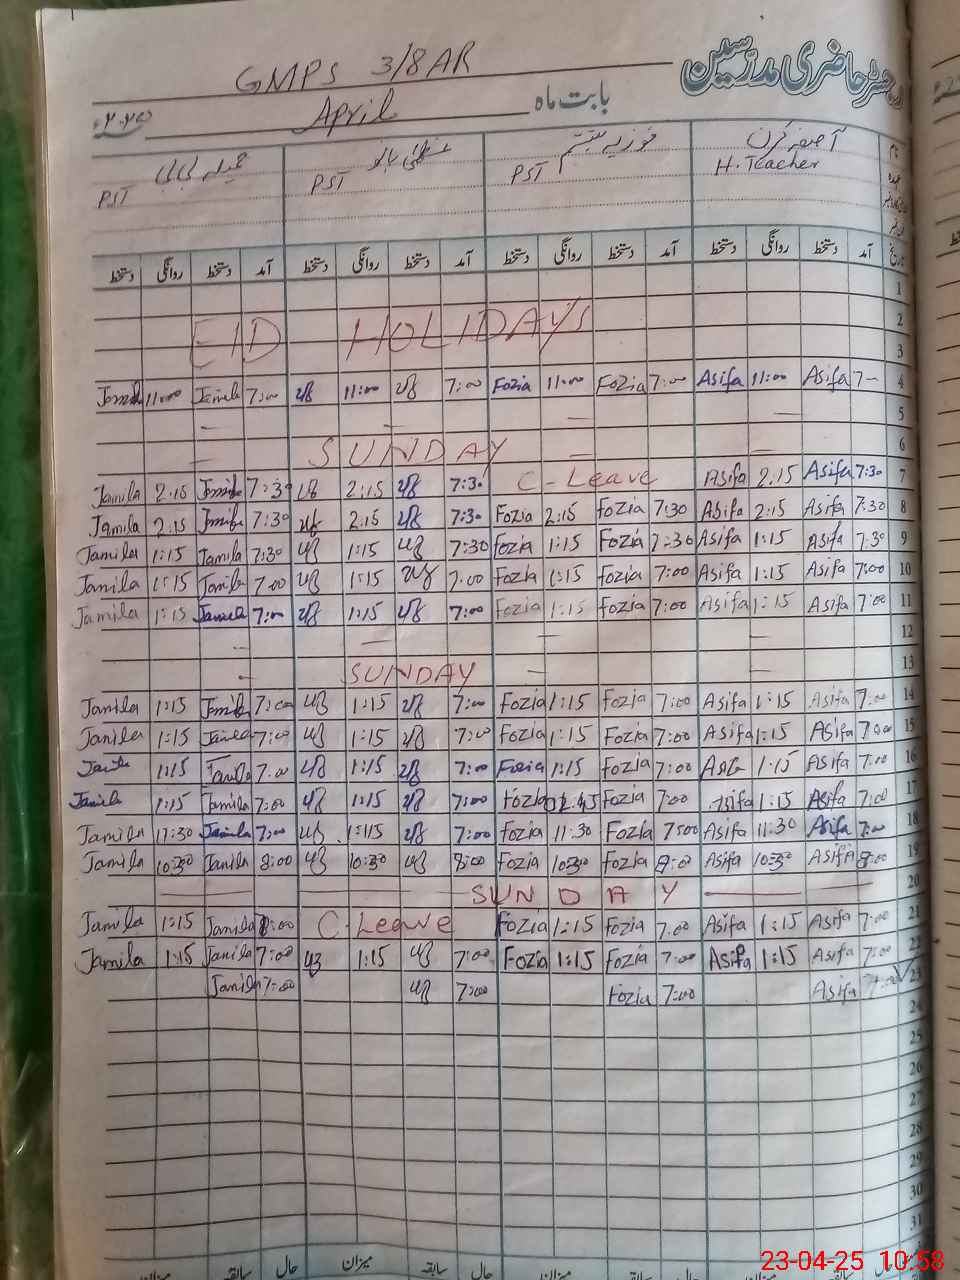 رجسٹر حاضری مدرسین
GMPS 3/8 AR
بابت ماہ April ۲۰۲۵ء
آصفہ کرن فوزیہ تبسم عظمیٰ بانو جمیلہ بی بی
H.Teacher PST PST PST
دستخط روانگی دستخط آمد دستخط روانگی دستخط آمد دستخط روانگی دستخط آمد دستخط روانگی دستخط آمد تاریخ
1
EID HOLIDAYS 2
3
11:00 Jamila 7:00 11:00 7:00 Fozia 11:00 Fozia 7:00 Asifa 11:00 Asifa 7- 4
5
SUNDAY 6
Jamila 2:15 Jamila 7:30 2:15 7:30 C-Leave Asifa 2:15 Asifa 7:30 7
Jamila 2:15 Jamila 7:30 2:15 7:30 Fozia 2:15 Fozia 7:30 Asifa 2:15 Asifa 7:30 8
Jamila 1:15 Jamila 7:30 1:15 7:30 Fozia 1:15 Fozia 7:30 Asifa 1:15 Asifa 7:30 9
Jamila 1:15 Jamila 7:00 1:15 7:00 Fozia 1:15 Fozia 7:00 Asifa 1:15 Asifa 7:00 10
Jamila 1:15 Jamila 7:00 1:15 7:00 Fozia 1:15 Fozia 7:00 Asifa 1:15 Asifa 7:00 11
12
SUNDAY 13
Jamila 1:15 Jamila 7:00 1:15 7:00 Fozia 1:15 Fozia 7:00 Asifa 1:15 Asifa 7:00 14
Jamila 1:15 Jamila 7:00 1:15 7:00 Fozia 1:15 Fozia 7:00 Asifa 1:15 Asifa 7:00 15
1:15 Jamila 7:00 1:15 7:00 Fozia 1:15 Fozia 7:00 1:15 Asifa 7:00 16
Jamila 1:15 Jamila 7:00 1:15 7:00 Fozia Fozia 7:00 Asifa 1:15 Asifa 7:00 17
Jamila 11:30 Jamila 7:00 7:00 Fozia 11:30 Fozia 7:00 Asifa 11:30 Asifa 7:00 18
Jamila 10:30 Jamila 8:00 10:30 8:00 Fozia 10:30 Fozia 8:00 Asifa 10:30 Asifa 8:00 19
SUNDAY 20
Jamila 1:15 Jamila C-Leave Fozia 1:15 Fozia 7:00 Asifa 1:15 Asifa 7:00 21
Jamila 1:15 Jamila 7:00 1:15 7:00 Fozia 1:15 Fozia 7:00 Asifa 1:15 Asifa 7:00 22
Jamila 7:00 7:00 Fozia 7:00 Asifa 7:00 23
24
25
26
27
28
29
30
31
میزان سابقہ حال میزان سابقہ حال میزان سابقہ حال میزان سابقہ حال
23-04-25 10:58